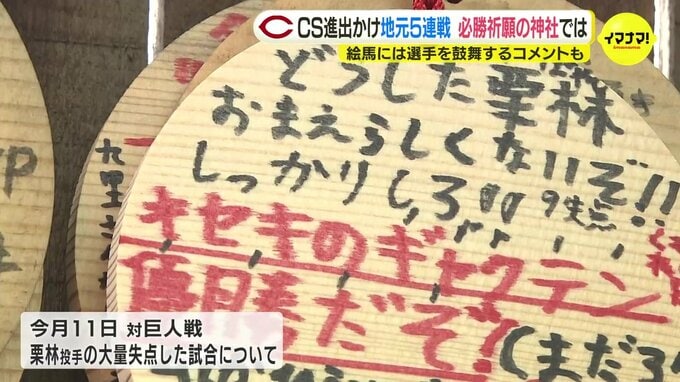 CS進出かけ地元5連戦 必勝祈願の神社では
絵馬には選手を鼓舞するコメントも
イマナマ!
imanama
どうした栗林
おまえらしくないぞ!!
しっかりしろ!!
9失点
キセキのギャクテン
優勝だぞ?
(まだ3
九里
今月11日 対巨人戦
栗林投手の大量失点した試合について